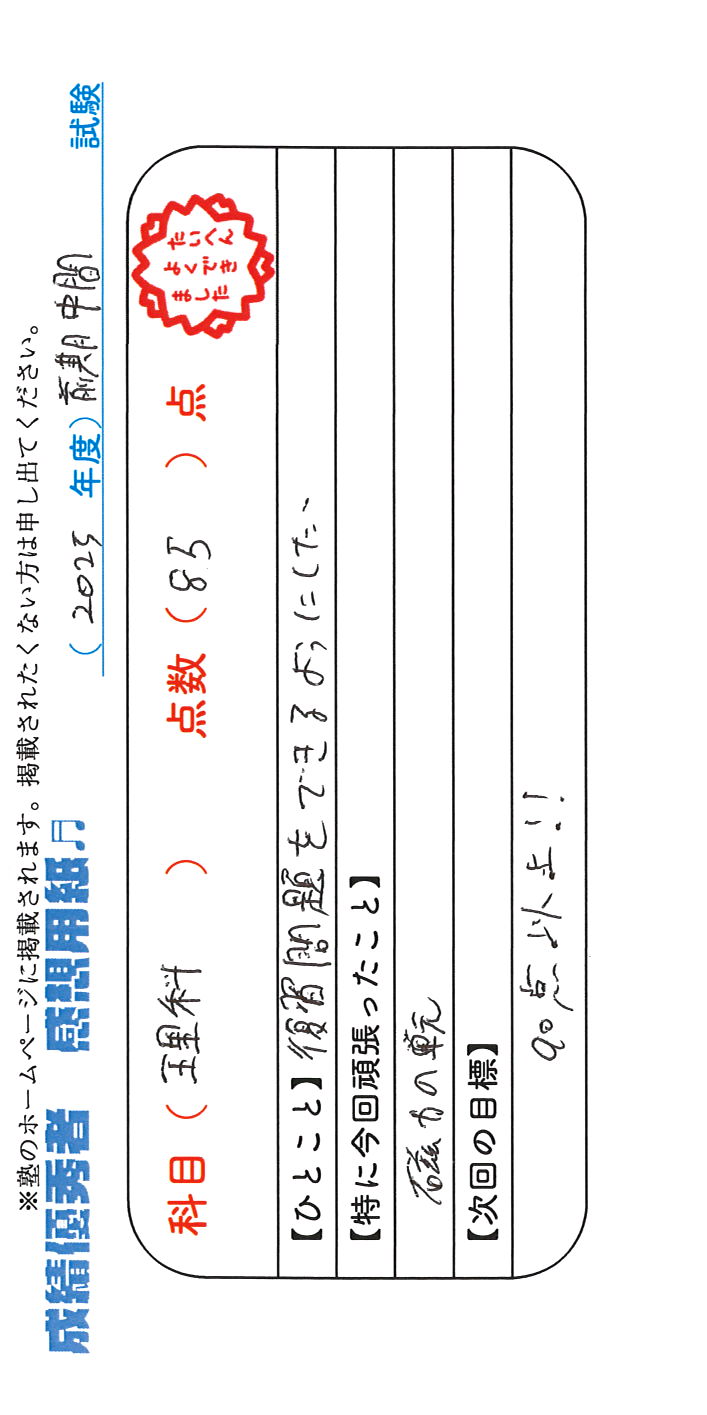 ※塾のホームページに掲載されます。掲載されたくない方は申し出てください。
成績優秀者 感想用紙♫
( 2025 年度) 前期中間 試験
科目 ( 理科 ) 点数 ( 85 ) 点
たいへん
よくでき
ました
【ひとこと】復習問題をできるようにしたい
【特に今回頑張ったこと】
磁力の単元
【次回の目標】
90点以上!!